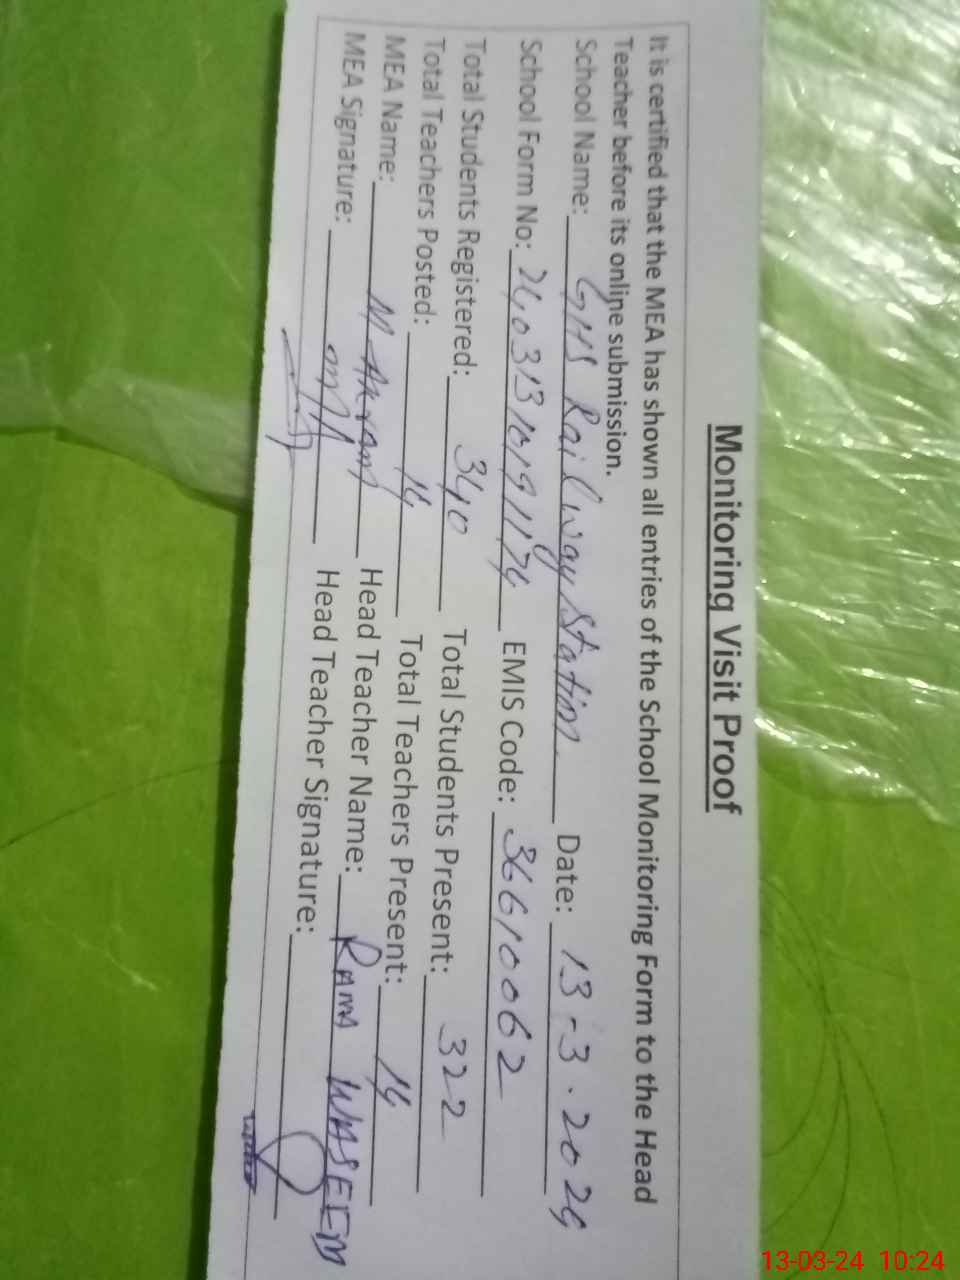 Monitoring Visit Proof
It is certified that the MEA has shown all entries of the School Monitoring Form to the Head
Teacher before its online submission.
School Name: GHS Railway Station Date: 13-3.2024
School Form No: EMIS Code: 36610062
Total Students Registered: 340 Total Students Present: 322
Total Teachers Posted: 14 Total Teachers Present: 14
MEA Name: M. Akram Head Teacher Name: RANA WASEEM
MEA Signature: Head Teacher Signature:
13-03-24 10:24